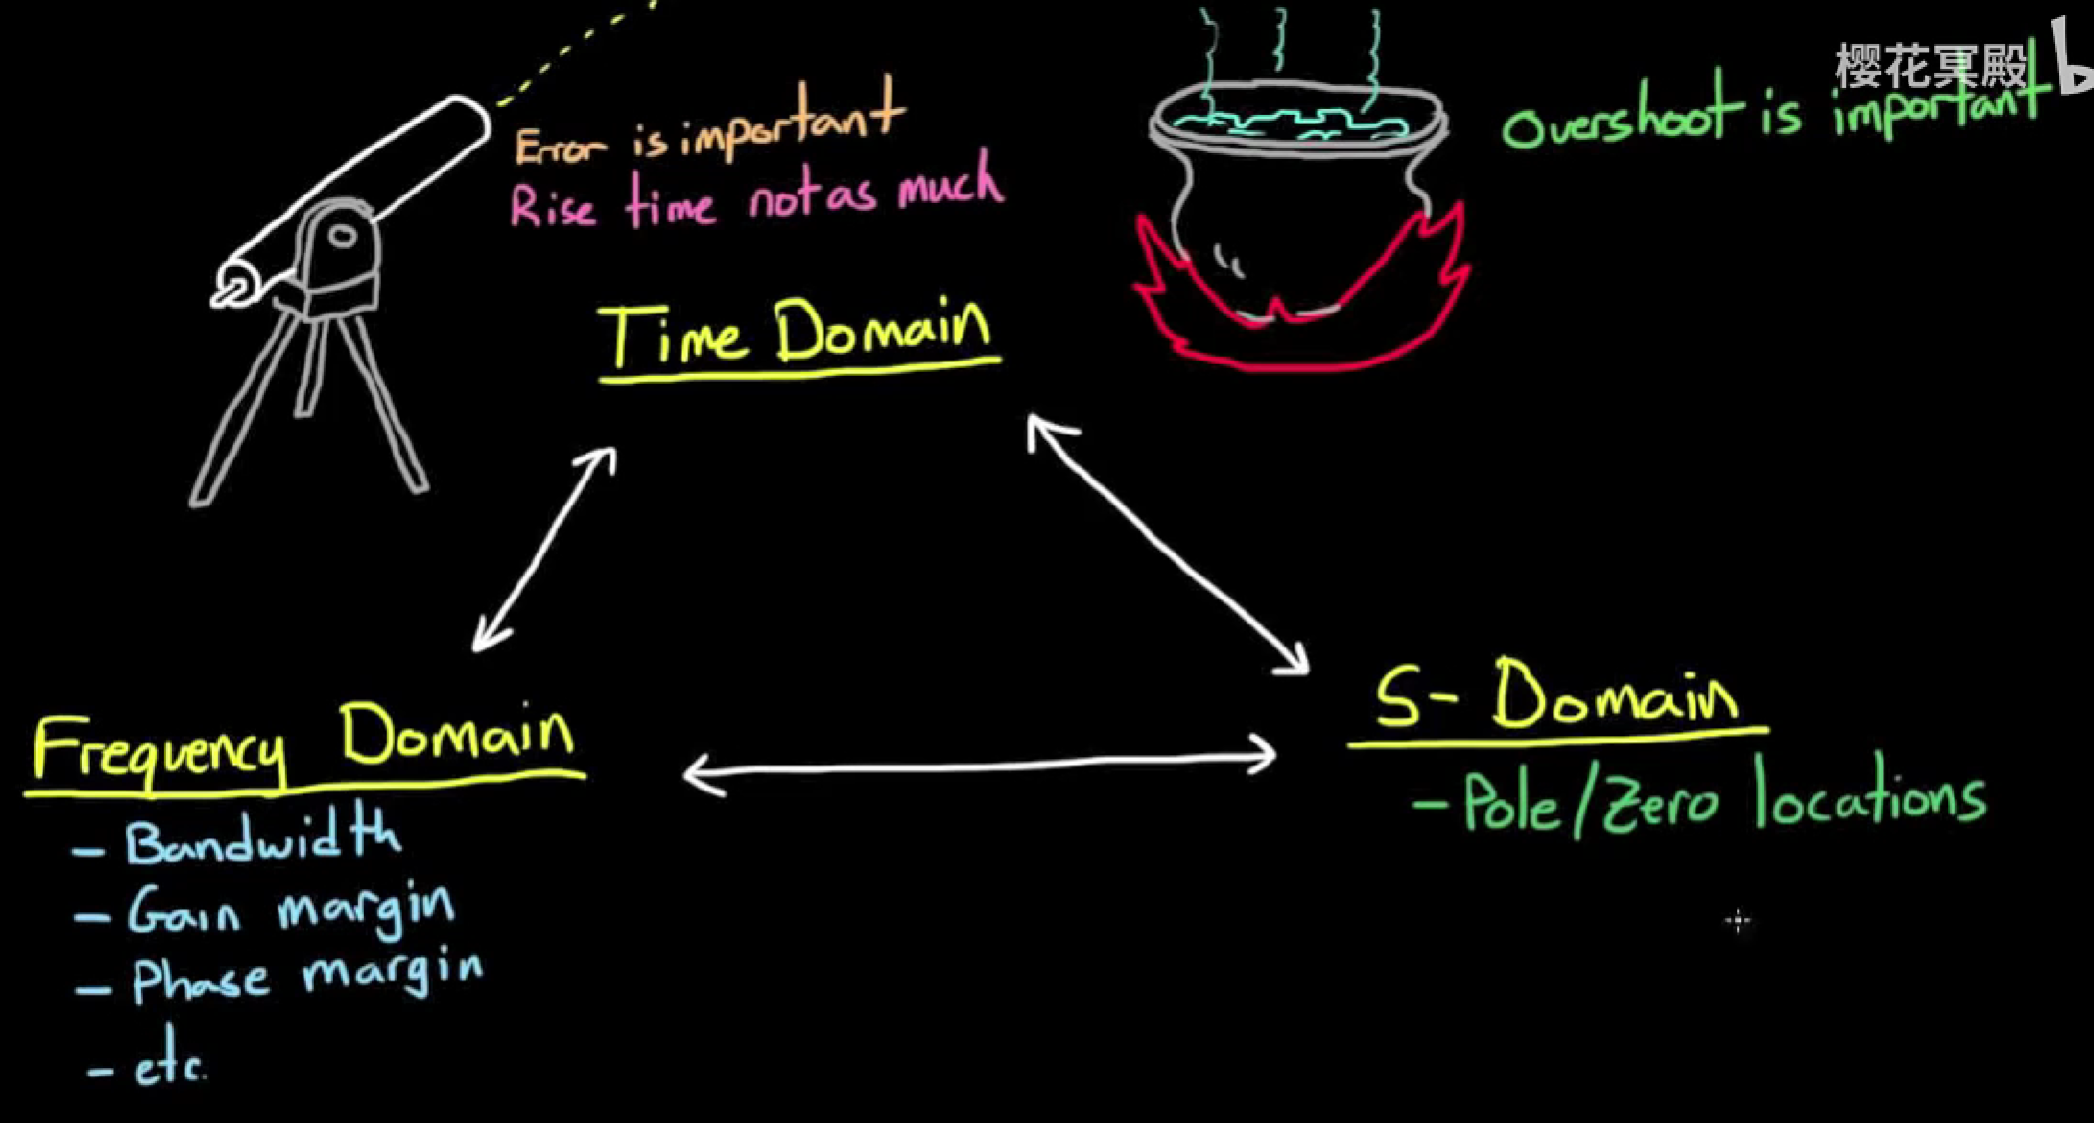 樱花冥殿 b
Error is important
Rise time not as much
Overshoot is important
Time Domain
Frequency Domain
- Bandwidth
- Gain margin
- Phase margin
- etc.
S- Domain
- Pole/Zero locations